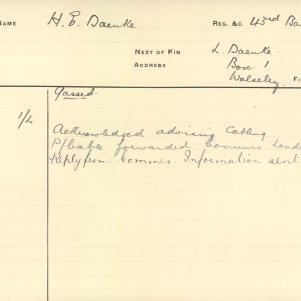 NAME H. E. Daenke REG. &C. 43rd Ba
NEXT OF KIN L. Daenke
ADDRESS Box 1
Wolseley.
Gassed.
1/2 Acknowledged advising Cabling
P/Cable forwarded Commrs Lond
Reply from Commrs. Information sent